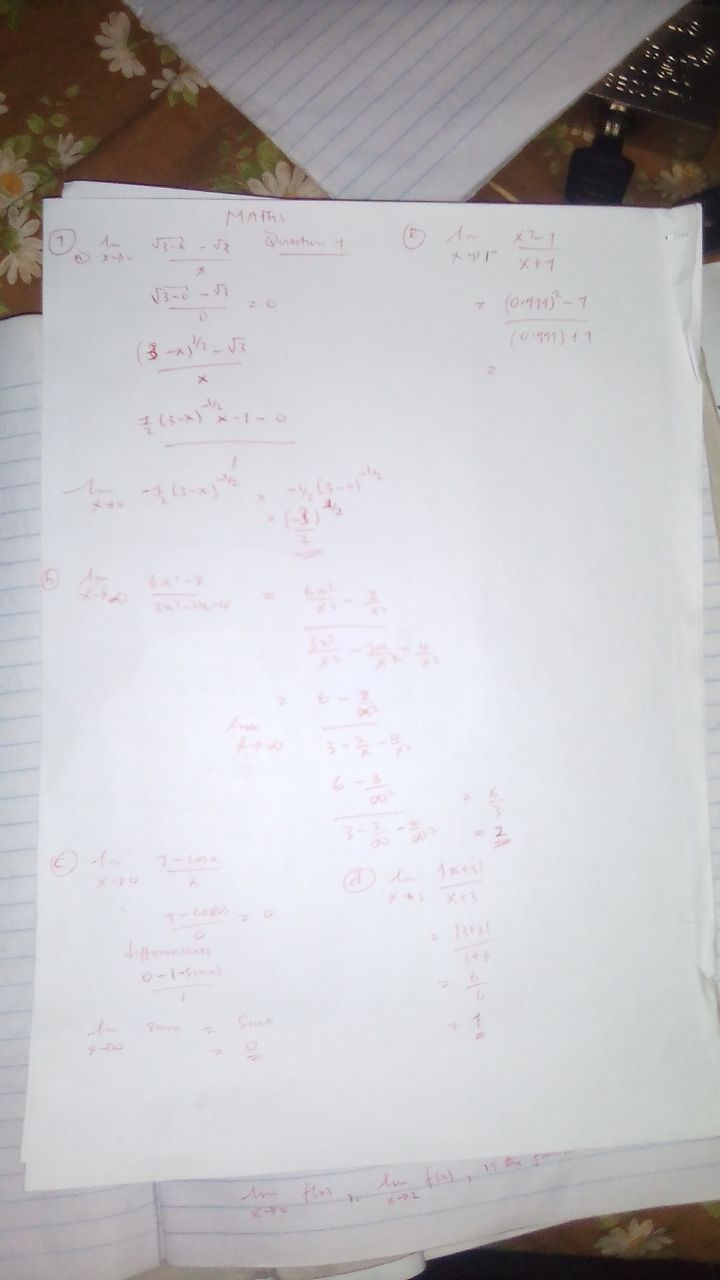 Maths
Question 1
① a) lim x→0 (√3-x - √3)/x
(√3-0 - √3)/0 = 0
((3-x)^1/2 - √3)/x
(1/2 (3-x)^-1/2 x -1 - 0)/1
lim x→0 -1/2 (3-x)^-1/2 = -1/2 (3-0)^-1/2
b) lim x→∞ (6x²-8)/(3x²-2x-4) = (6x²/x² - 8/x²)/(3x²/x² - 2x/x² - 4/x²)
= lim x→∞ (6 - 8/x²)/(3 - 2/x - 4/x²)
(6 - 8/∞²)/(3 - 2/∞ - 4/∞²) = 6/3
= 2
c) lim x→0 (1-cosx)/x
(1-cos(0))/0 = 0
differenciate
(0-(-sinx))/1
lim x→0 sinx = sin0
= 0
d) lim x→3 |x+3|/(x+3)
= |3+3|/(3+3)
= 6/6
= 1
lim x→1⁻ (x²-1)/(x+1)
= ((0.999)²-1)/((0.999)+1)
=
lim x→0 f(x), lim x→2 f(x), is the